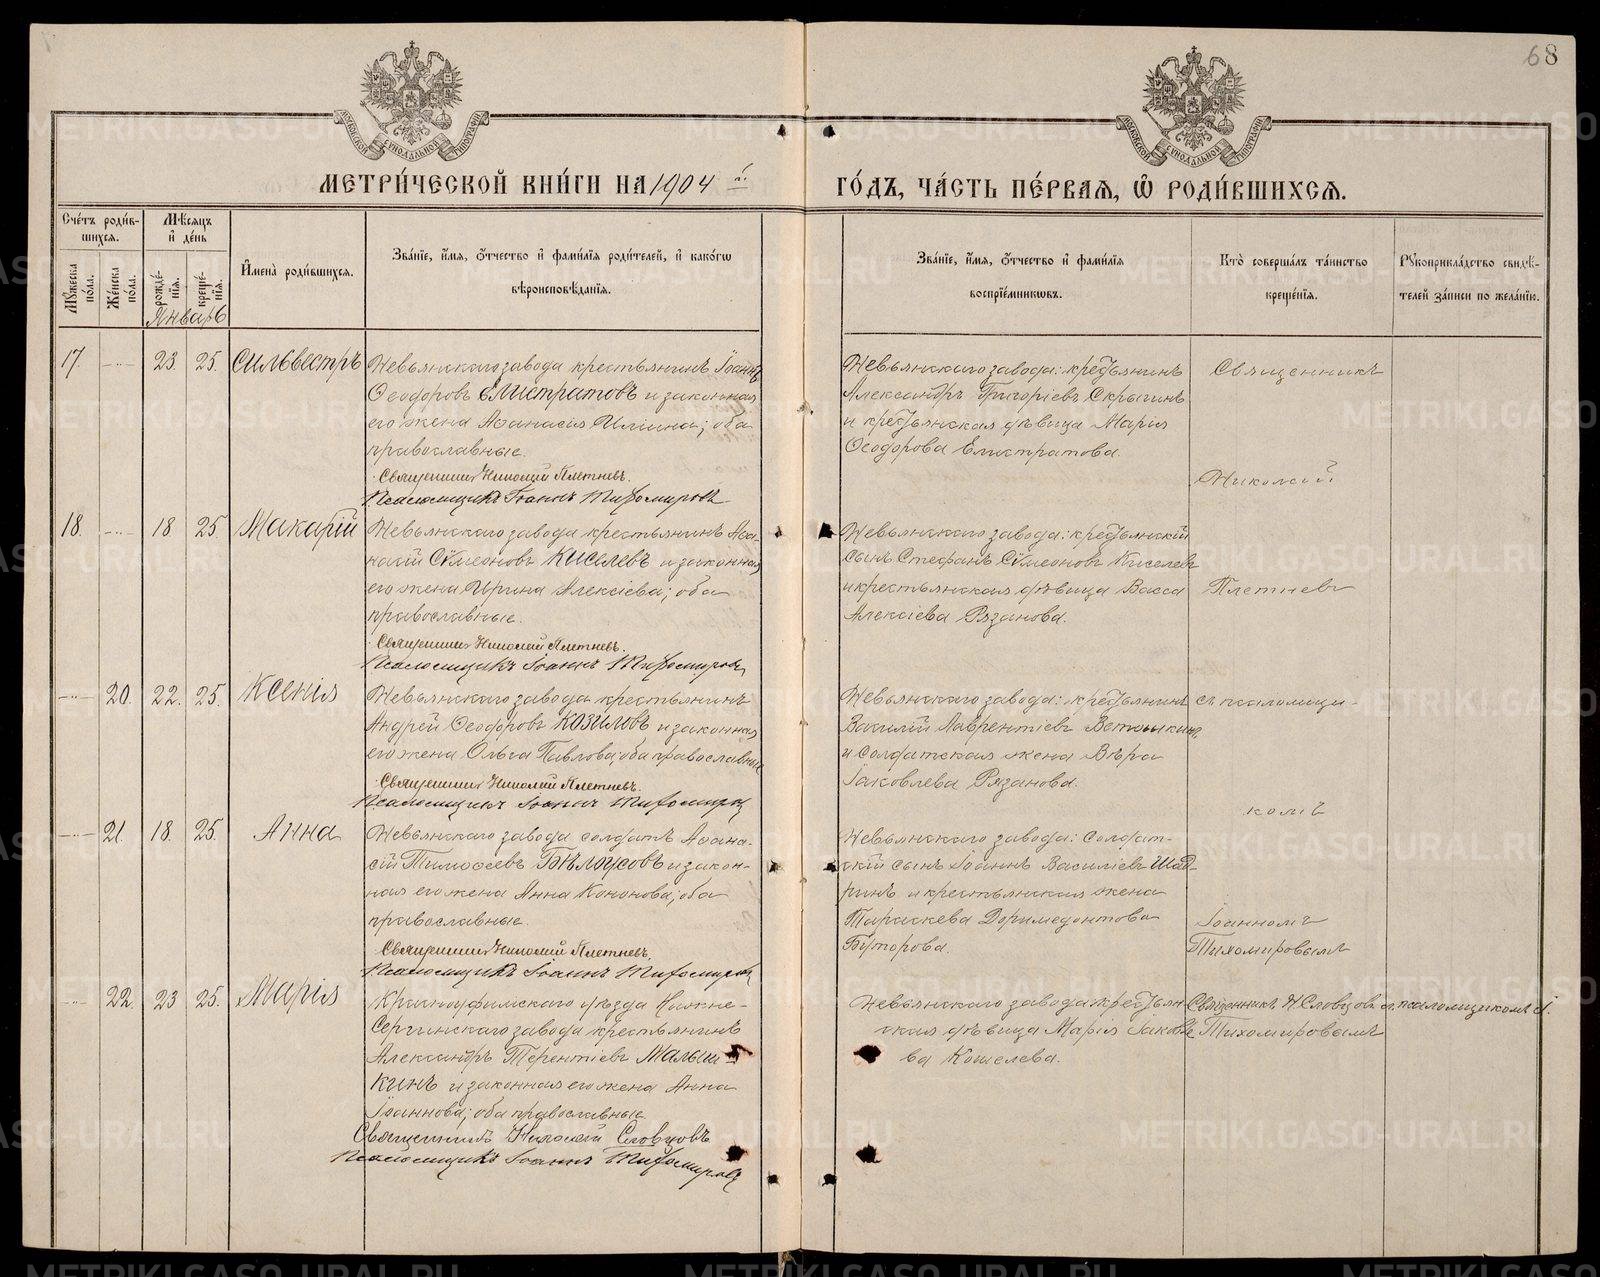 68
МОСКОВСКОЙ СѴНОДАЛЬНОЙ ТИПОГРАФІИ
МОСКОВСКОЙ СѴНОДАЛЬНОЙ ТИПОГРАФІИ
МЕТРИ́ЧЕСКОЙ КНИ́ГИ НА 1904 й.
ГО́ДЪ, ЧА́СТЬ ПЕ́РВАѦ, Ѽ РОДИ́ВШИХСѦ.
Сче́тъ роди́в-
шихсѧ.
Мѣ́сѧцъ
и҆ де́нь
Мꙋ́жеска по́ла.
Же́нска по́ла.
рожде́-нїѧ.
креще́-нїѧ.
Январь
И҆мена̀ роди́вшихсѧ.
Зва́нїе, и҆́мѧ, ѻ҆́тчество и҆ фами́лїѧ роди́телей, и҆ како́гѡ
вѣроисповѣ́данїѧ.
Зва́нїе, и҆́мѧ, ѻ҆́тчество и҆ фами́лїѧ
воспрїе́мникѡвъ.
Кто̀ соверша́лъ та́инство
креще́нїѧ.
Рꙋкоприкла́дство свидѣ́-
телей за́писи по жела́нїю.
17. 23. 25. Сильвестръ
Невьянскаго завода крестьянинъ Іоаннъ
Ѳеодоровъ Елистратовъ и законная
его жена Аѳанасія Ильина; оба
православные.
Священникъ Николай Плетневъ.
Псаломщикъ Іоаннъ Тихомировъ
Невьянскаго завода: крестьянинъ
Александръ Григоріевъ Скрыгинъ
и крестьянская дѣвица Марія
Ѳеодорова Елистратова.
Священникъ
Николай
18. 18 25. Макарій
Невьянскаго завода крестьянинъ Аѳа-
насій Сѵмеоновъ Киселевъ и законная
его жена Ирина Алексіева; оба
православные.
Священникъ Николай Плетневъ.
Псаломщикъ Іоаннъ Тихомировъ
Невьянскаго завода: крестьянскій
сынъ Стефанъ Сѵмеоновъ Киселевъ
и крестьянская дѣвица Васса
Алексіева Рязанова.
Плетневъ
20. 22. 25. Ксенія
Невьянскаго завода крестьянинъ
Андрей Ѳеодоровъ Козиловъ и законная
его жена Ольга Павлова; оба православные
Священникъ Николай Плетневъ.
Псаломщикъ Іоаннъ Тихомировъ
Невьянскаго завода: крестьянинъ
Василій Лаврентіевъ
и солдатская жена Вѣра
Іаковлева Рязанова.
съ псаломщи-
комъ
21. 18. 25. Анна
Невьянскаго завода солдатъ Аѳана-
сій Тимоѳеевъ Бѣлоусовъ и закон-
ная его жена Анна Кононова; оба
православные.
Священникъ Николай Плетневъ.
Псаломщикъ Іоаннъ Тихомировъ
Невьянскаго завода: солдат-
скій сынъ Іоаннъ Василіевъ Шад-
ринъ и крестьянская жена
Параскева Доримедонтова
Буторова.
Іоанномъ
Тихомировымъ
22. 23 25. Марія
Красноуфимскаго уѣзда Нижне-
Сергинскаго завода крестьянинъ
Александръ Терентіевъ Малыш-
кинъ и законная его жена Анна
Іоаннова; оба православные.
Священникъ Николай Словцовъ
Псаломщикъ Іоаннъ Тихомировъ
Невьянскаго завода крестьян-
ская дѣвица Марія Іаковле-
ва Кошелева.
Священникъ Н. Словцовъ съ псаломщикомъ І.
Тихомировымъ
METRIKI.GASO-URAL.RU